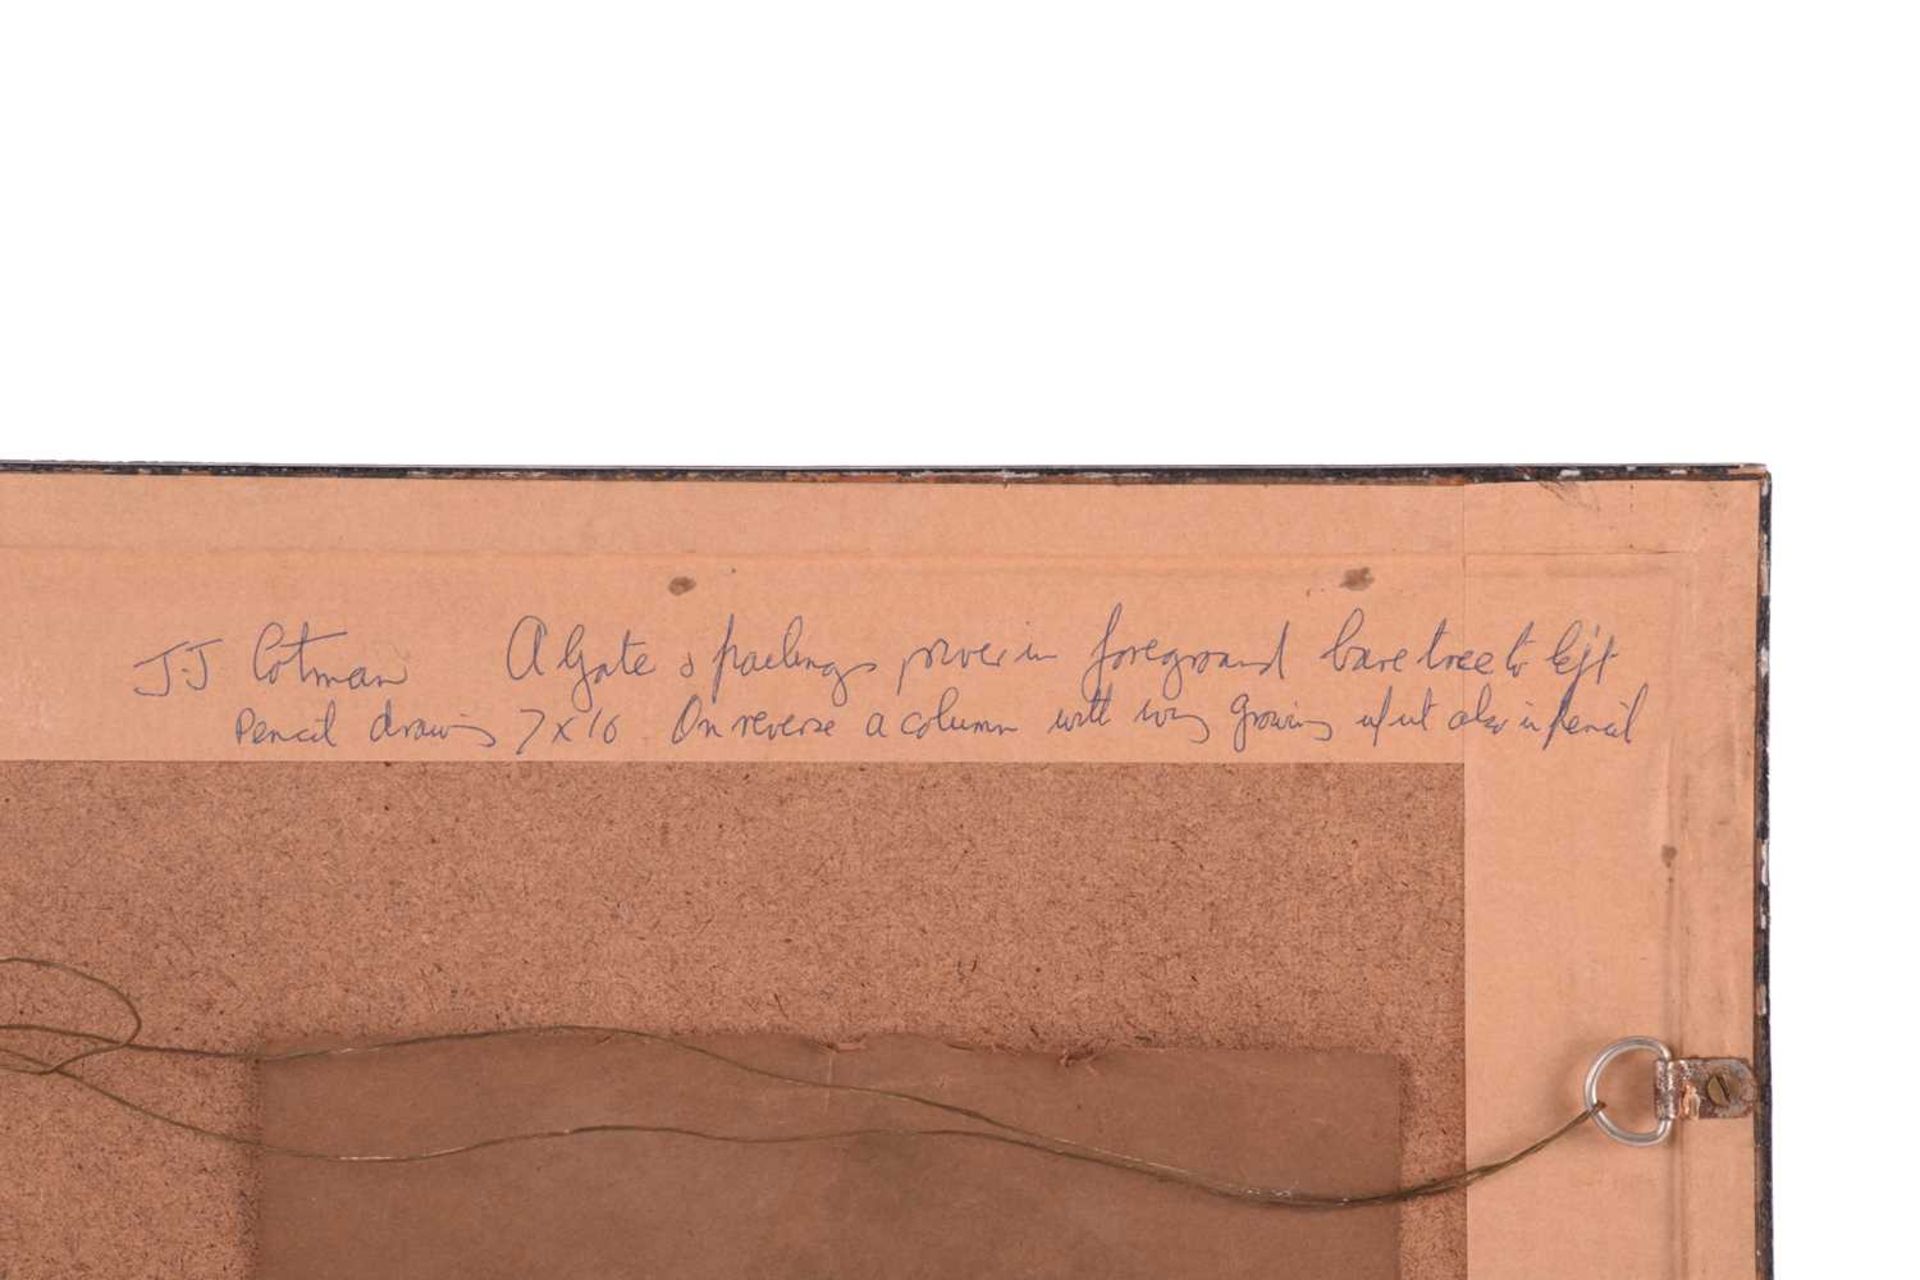 J.J Cotman A Gate & pailings river in foreground bare tree to left
Pencil drawing 7 x 10 On reverse a column with ivy growing up it also in pencil